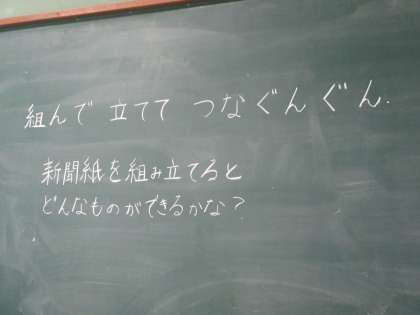 組んで 立てて つなぐんぐん.
新聞紙を組み立てると
どんなものができるかな?